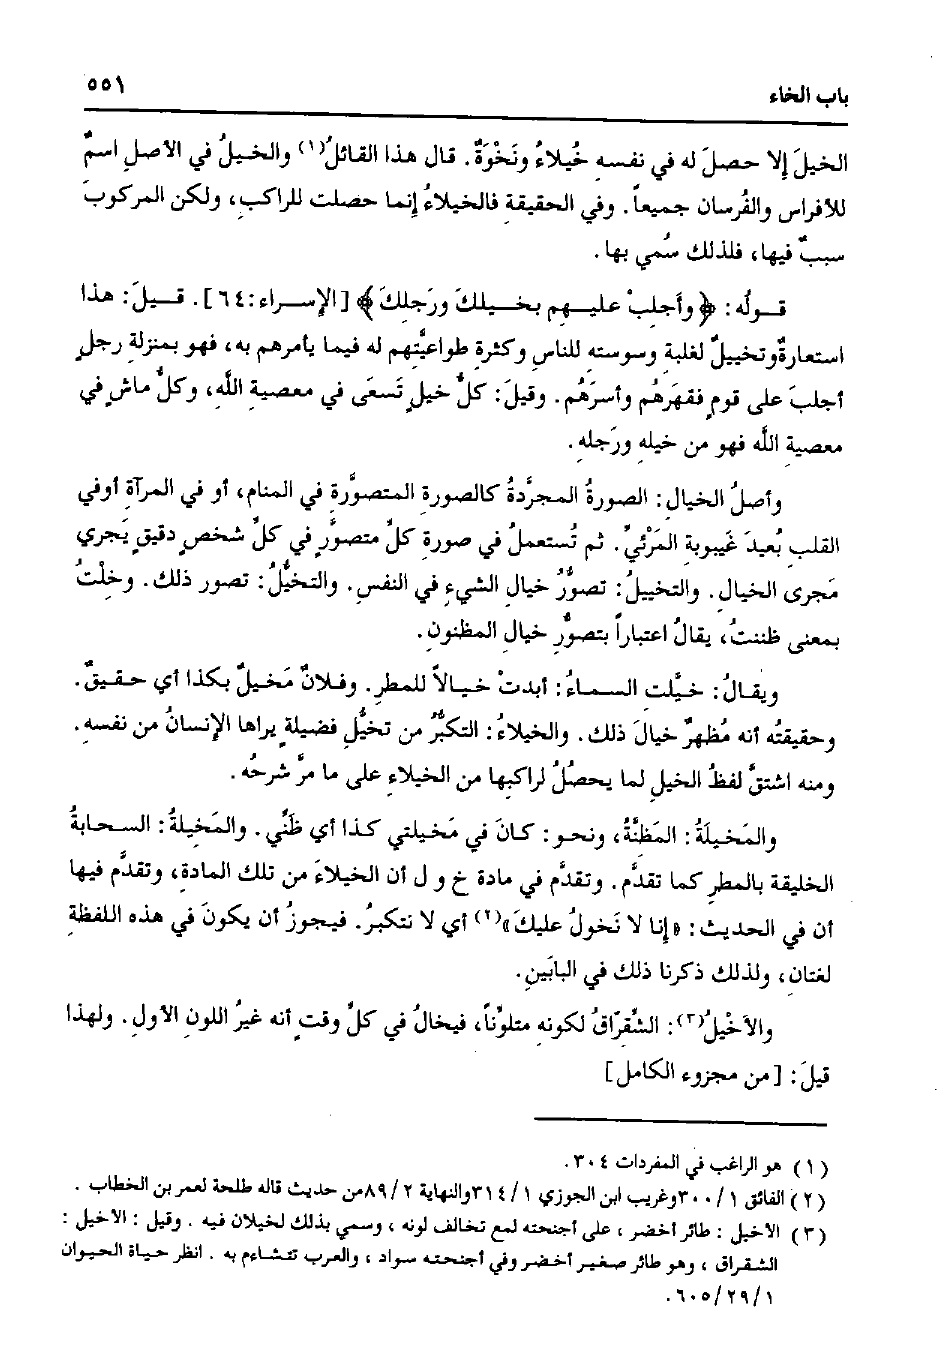 باب الخاء ٥٥١
الخيلَ إلا حصلَ له في نفسهِ خُيلاءُ ونَخْوَةٌ. قال هذا القائلُ(١) والخيلُ في الأصلِ اسمٌ
للأفراسِ والفُرسان جميعاً. وفي الحقيقة فالخيلاءُ إنما حصلت للراكبِ، ولكن المركوبَ
سببٌ فيها، فلذلك سُمي بها.
قولُه: ﴿وأجلبْ عليهم بخيلكَ ورَجلِكَ﴾ [الإسراء:٦٤]. قيلَ: هذا
استعارةٌ وتخييلٌ لغلبةِ وسوسته للناسِ وكثرةِ طواعيَّتِهم له فيما يأمرهم به، فهو بمنزلةِ رجلٍ
أجلبَ على قومٍ فقهَرهُم وأسرَهُم. وقيلَ: كلُّ خيلٍ تَسعَى في معصيةِ اللَّهِ، وكلُّ ماشٍ في
معصيةِ اللَّه فهو من خيلهِ ورَجله.
وأصلُ الخيال: الصورةُ المجرَّدةُ كالصورةِ المتصوَّرة في المنام، أو في المرآةِ أوفي
القلب بُعيدَ غَيبوبةِ المَرْئيِّ. ثم تُستعملُ في صورةِ كلِّ متصوَّرٍ في كلِّ شخصٍ دقيقٍ يَجري
مَجرى الخيالِ. والتخييلُ: تصوُّرُ خيالِ الشيءِ في النفس. والتخيُّلُ: تصور ذلك. وخِلْتُ
بمعنى ظننتُ، يقالُ اعتباراً بتصوُّرِ خيال المظنونِ.
ويقالُ: خيَّلت السماءُ: أبدتْ خيالاً للمطرِ. وفلانٌ مَخيلٌ بكذا أي حقيقٌ.
وحقيقتُه أنه مُظهرٌ خيالَ ذلك. والخيلاءُ: التكبُّرُ من تخيُّلِ فضيلةٍ يراها الإنسانُ من نفسهِ.
ومنه اشتقَّ لفظُ الخيلِ لما يحصُلُ لراكبها من الخيلاءِ على ما مرَّ شرحُه.
والمَخيلَةُ: المَظنَّةُ، ونحو: كانَ في مَخيلتي كذا أي ظنِّي. والمَخيلةُ: السحابةُ
الخليقةُ بالمطرِ كما تقدَّم. وتقدَّم في مادة خ و ل أن الخيلاءَ من تلك المادة، وتقدَّم فيها
أن في الحديث: «إنا لا نَخولُ عليكَ»(٢) أي لا نتكبرُ. فيجوزُ أن يكونَ في هذه اللفظةِ
لغتانِ، ولذلك ذكرنا ذلك في البابَينِ.
والأخْيلُ(٣): الشُّقرّاقُ لكونهِ متلوِّناً، فيخالُ في كلِّ وقت أنه غيرُ اللون الأولِ. ولهذا
قيلَ: [من مجزوء الكامل]
(١) هو الراغب في المفردات ٣٠٤.
(٢) الفائق ٣٠٠/١ وغريب ابن الجوزي ٣١٤/١ والنهاية ٨٩/٢ من حديث قاله طلحة لعمر بن الخطاب.
(٣) الأخيل: طائر أخضر، على أجنحته لمع تخالف لونه، وسمي بذلك لخيلان فيه. وقيل: الأخيل:
الشقراق، وهو طائر صغير أخضر وفي أجنحته سواد، والعرب تتشاءم به. انظر حياة الحيوان
٦٠٥/٢٩/١.